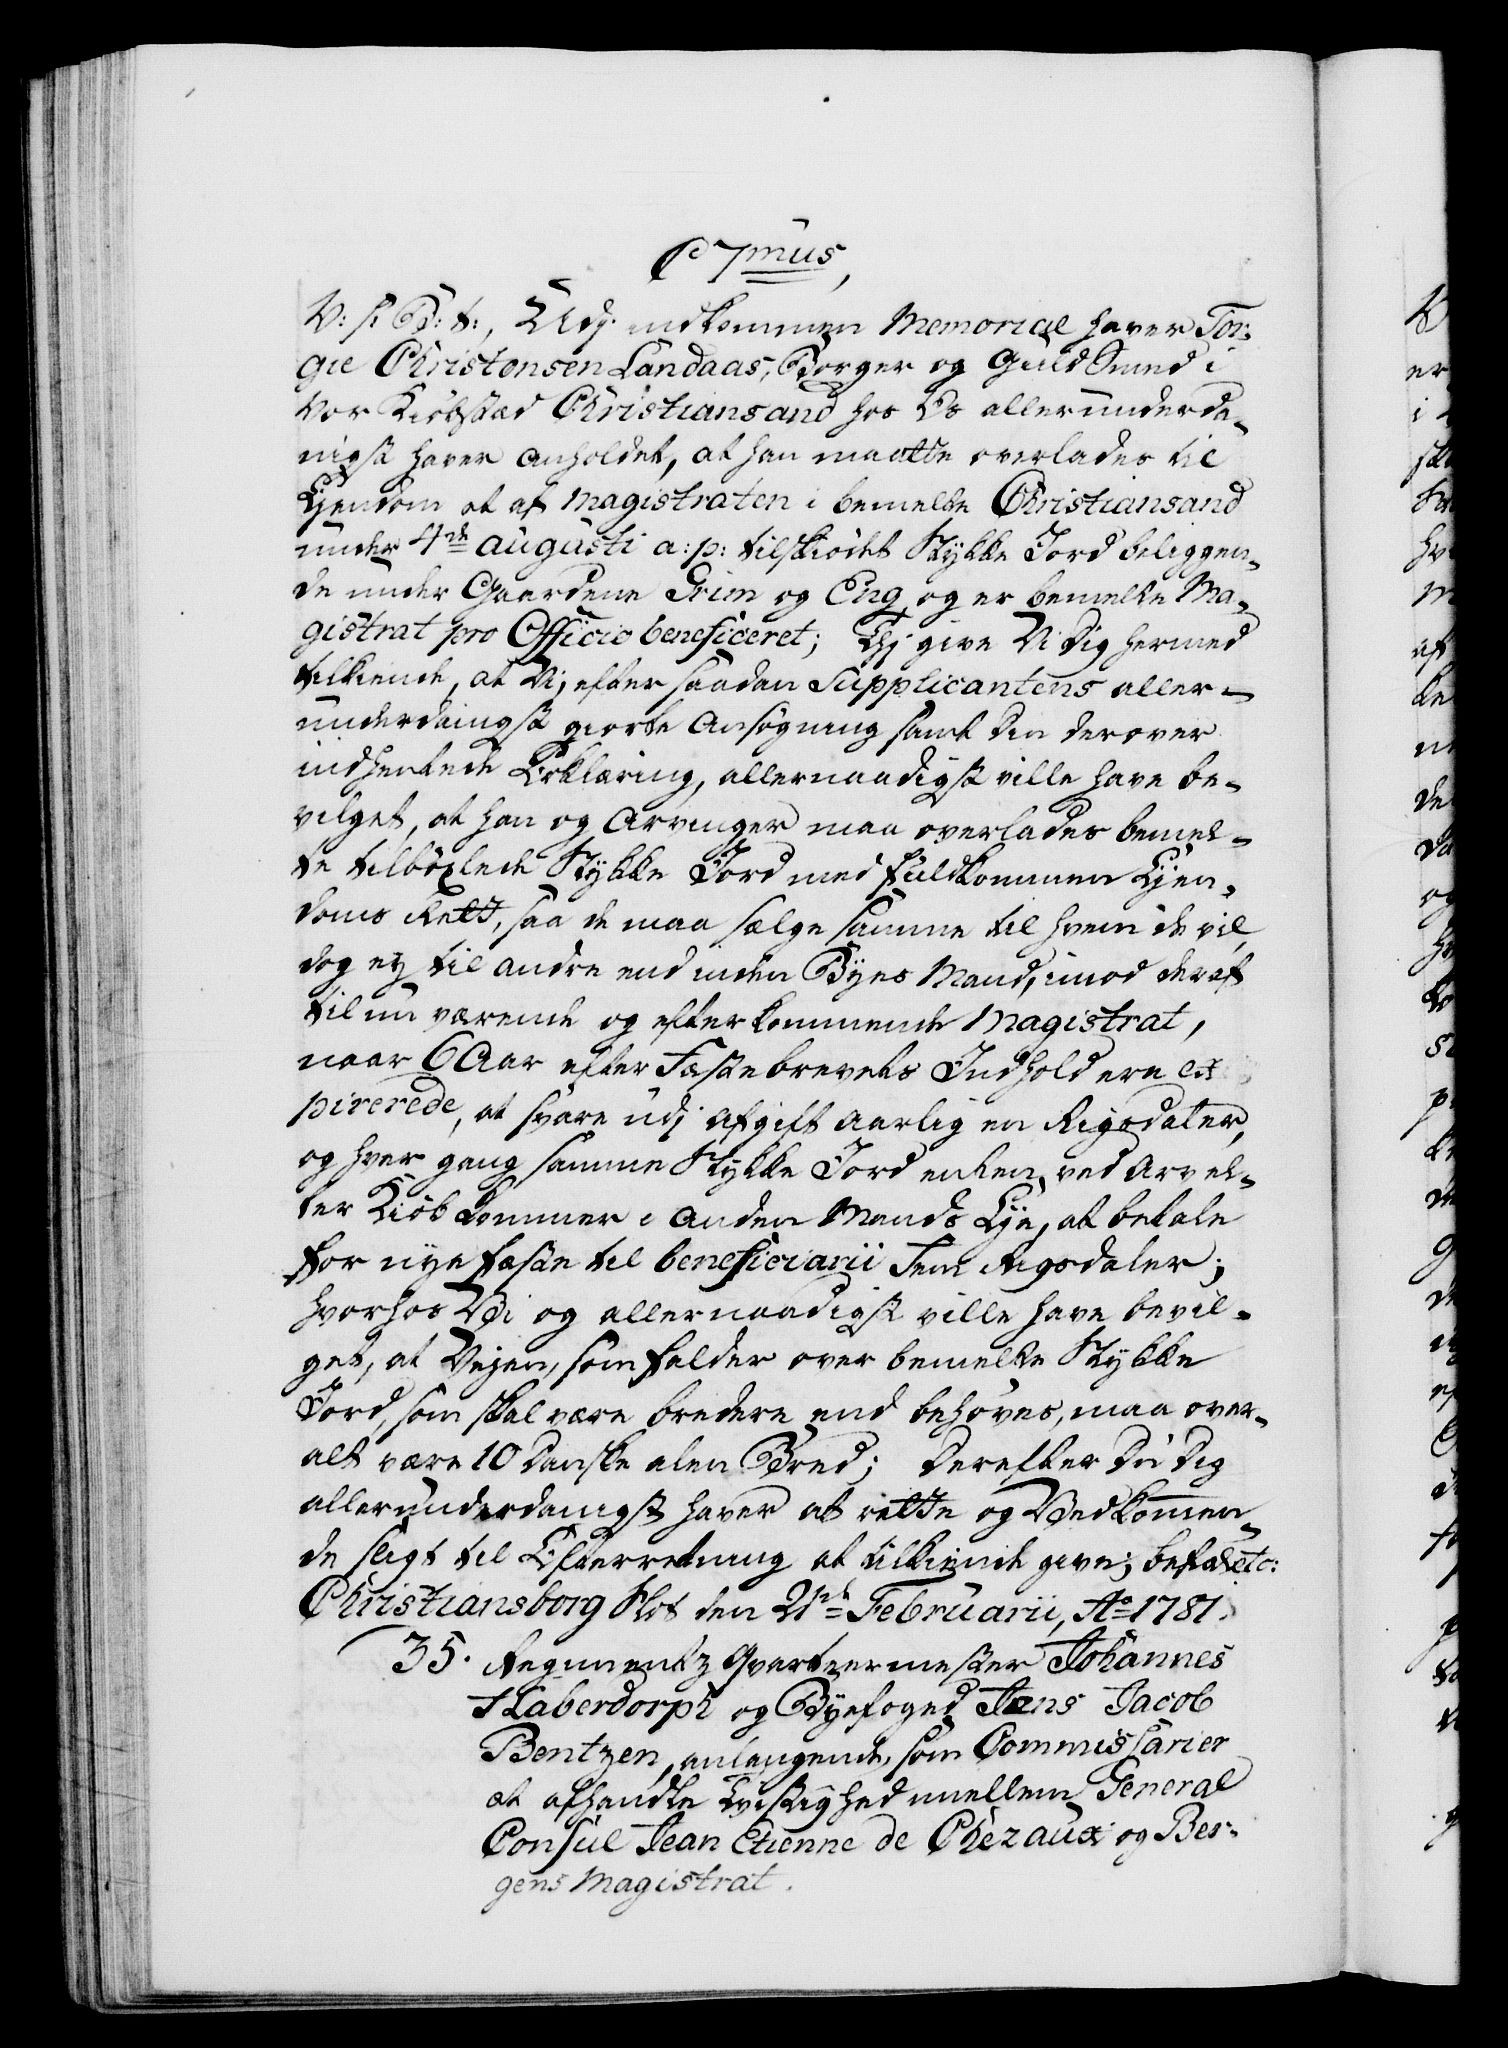 C 7mus,
V: s: G: t:, Udj indkommen Memorial haver Tor-
gie Christensen Landaas, Borger og Guldsmed i
Vor Kiöbstæd Christiansand hos Os allerunderda-
nigst haver anholdet, at han maatte overlades til
Eyendom et af Magistraten i bemelte Christiansand
under 4de Augusti a: p: tilskiödet Stykke Jord beliggen-
de under Gaardene Grim og Eng, og er bemelte Ma-
gistrat pro Officio beneficeret; Thj give Vi Dig hermed
tilkiende, at Vi, efter saadan Supplicantens aller-
underdanigst giorte Ansögning samt Din derover
indhentede Erklæring, allernaadigst ville have be-
vilget, at han og Arvinger maa overlades bemel-
te tilböxlede Stykke Jord med fuldkommen Eyen-
doms Rett, saa de maa sælge samme til hvem de vil,
dog ey til andre end inden Byes Mænd, imod deraf
til nu værende og efterkommende Magistrat,
naar 6 Aar efter Fæstebrevets Indhold ere ex-
pirerede, at svare udj afgift aarlig en Rigsdaler,
og hver gang samme Stykke Jord enten ved Arv el-
ler Kiöb kommer i anden Mands Eye, at betale
for nye fæste til beneficiarii Fem Rigsdaler;
hvorhos Vi og allernaadigst ville have bevil-
get, at Vejen, som falder over bemelte Stykke
Jord, som skal være bredere end behöves, maa over-
alt være 10 Danske alen Bred; Derefter Du Dig
allerunderdanigst haver at rette og Vedkommen-
de sligt til Efterretning at tilkiende give; befal: etc:
Christiansborg Slot den 21de Februarii, Ao 1781.
35. Regimentz Qvarteermester Johannes
Haberdorph og Byefoged Jens Jacob
Bentzen, anlangende, som Commissarier
at afhandle Tvistighed mellem General
Consul Jean Etienne de Chezaux og Ber-
gens Magistrat.